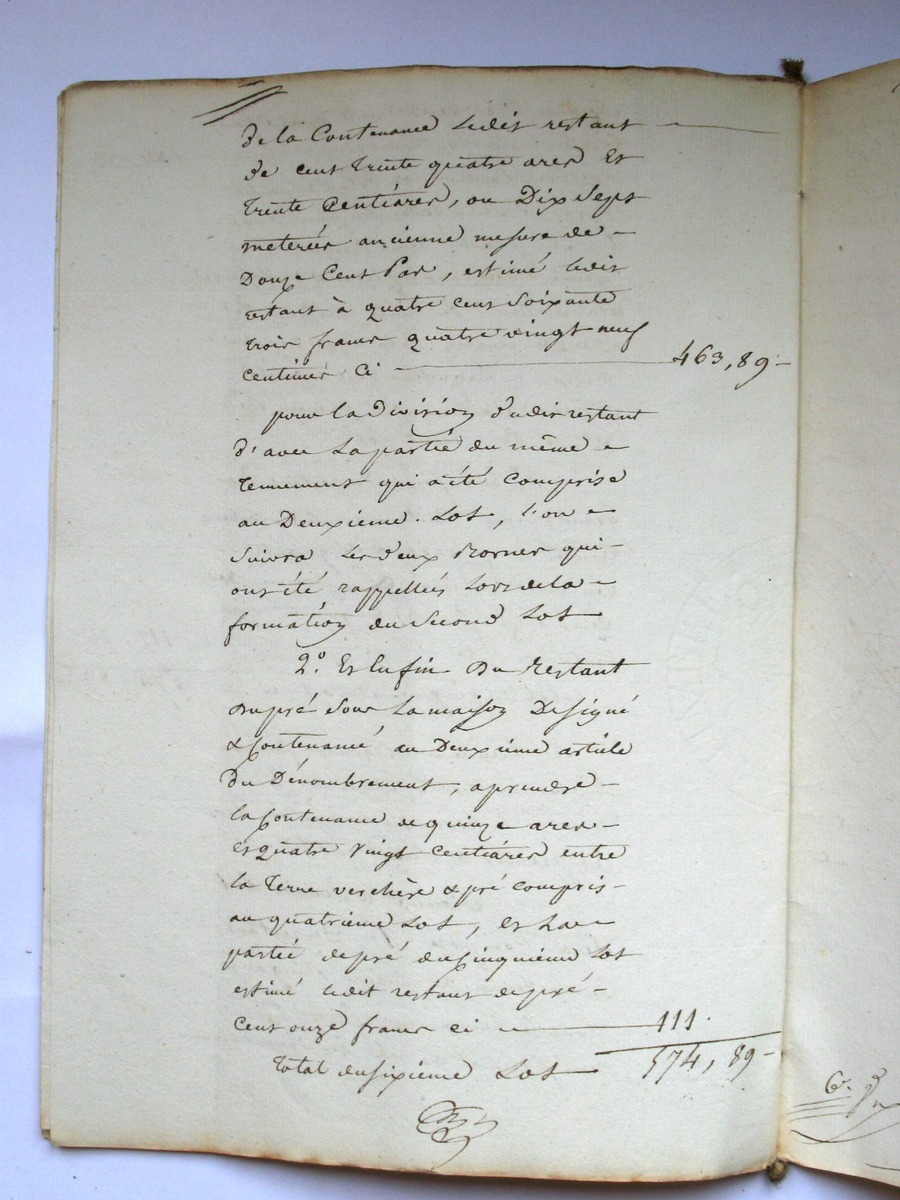 de la Contenance ledit restant
de cent trente quatre ares et
trente Centiares, ou Dix Sept
meterées ancienne mesure de
Douze Cent Pas, estimé ledit
restant à quatre cent Soixante
trois francs quatre vingt neuf
centimes Ci 463, 89
pour la division dudit restant
d'avec la partie du même
tennement qui a été Comprise
au Deuxième Lot, l'on
Suivra les deux Bornes qui
ont été rappellées Lors de la
formation du Second Lot
2.° Et Enfin du restant
du pré Sous la maison Designé
& Contenancé au Deuxième article
du Dénombrement, a prendre
la Contenance de quinze ares
et quatre Vingt Centiares entre
la Terre verchère & pré compris
au quatrième Lot, et la
partie de pré du Cinquième Lot
estimé ledit restant de pré
Cent onze francs ci 111.
Total du Sixième Lot 574, 89